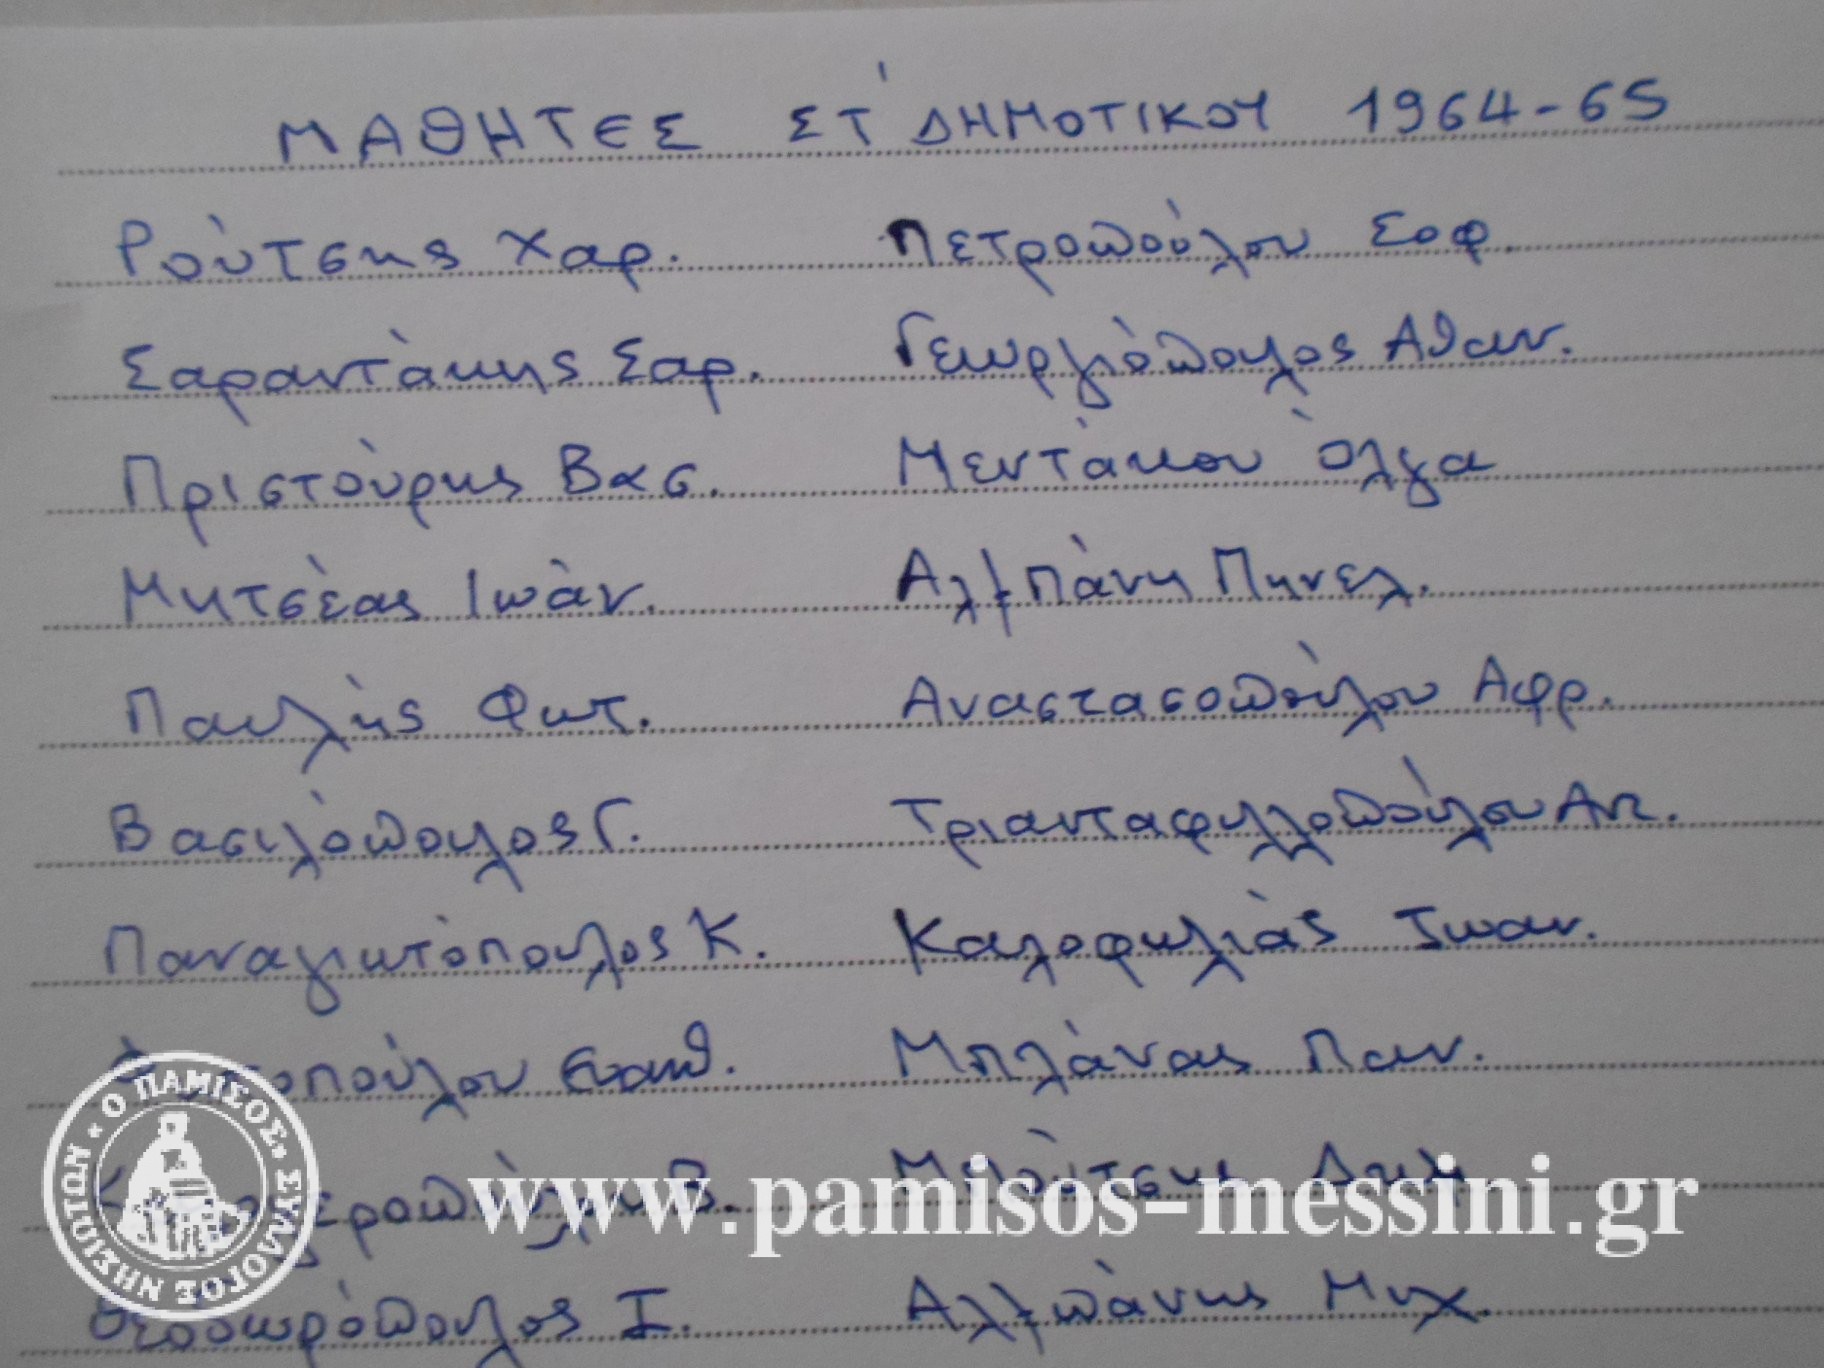 ΜΑΘΗΤΕΣ ΣΤ' ΔΗΜΟΤΙΚΟΥ 1964-65
Ρούτσης Χαρ. Πετροπούλου Σοφ.
Σαραντάκης Σαρ. Γεωργιόπουλος Αθαν.
Πριστούρης Βασ. Μεντάκου Όλγα
Μητσέας Ιωάν. Αλ/πάνη Πηνελ.
Παυλής Φωτ. Αναστασοπούλου Αφρ.
Βασιλόπουλος Γ. Τριανταφυλλοπούλου Αντ.
Παναγιωτόπουλος Κ. Καλοφωλιάς Ιωαν.
Ευσταθ. Μπλάνας Παν.
Β.
Θεοδωρόπουλος Ι. Μιχ.
«Ο ΠΑΜΙΣΟΣ» ΣΥΛΛΟΓΟΣ ΝΗΣΙΩΤΩΝ
www.pamisos-messini.gr